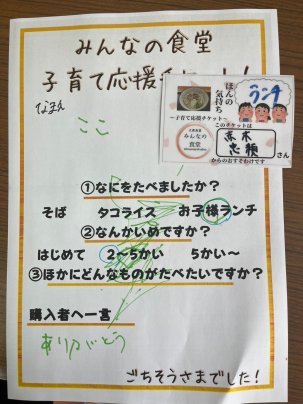 みんなの食堂
子育て応援チケット!
なまえ
ここ
ランチ
ほんの
気持ち
〜子育て応援チケット〜
みんなの
食堂
このチケットは
さん
からのおすそわけです
①なにをたべましたか?
そば タコライス お子様ランチ
②なんかいめですか?
はじめて 2〜5かい 5かい〜
③ほかにどんなものがたべたいですか?
購入者へ一言
ありがとう
ごちそうさまでした!